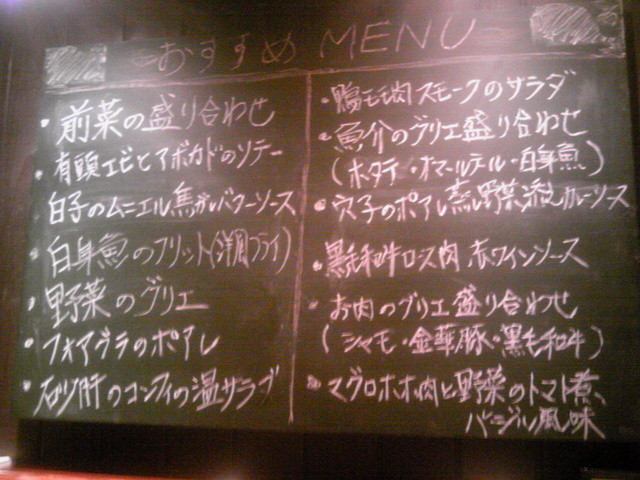 おすすめ MENU
・前菜の盛り合わせ
・有頭エビとアボカドのソテー
白子のムニエル焦がしバターソース
・白身魚のフリット(洋風フライ)
・野菜のグリエ
・フォアグラのポアレ
・砂肝のコンフィの温サラダ
・鴨モモ肉スモークのサラダ
・魚介のグリエ盛り合わせ
(ホタテ・オマールテル・白身魚)
・穴子のポアレ蒸し野菜添え カレーソース
・黒毛和牛ロース肉 赤ワインソース
・お肉のグリエ盛り合わせ
(シャモ・金華豚・黒毛和牛)
・マグロホホ肉と野菜のトマト煮、
バージル風味